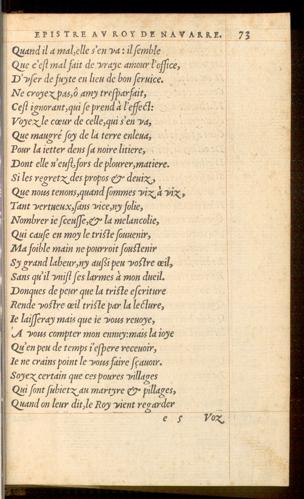 EPISTRE AV ROY DE NAVARRE. 73
Quand il a mal, elle s'en va: il semble
Que c'est mal fait de vraye amour l'office,
D'vser de fuyte en lieu de bon seruice.
Ne croyez pas, ô amy tresparfait,
Cest ignorant, qui se prend à l'effect:
Voyez le cœur de celle, qui s'en va,
Que maugré soy de la terre enleua,
Pour la ietter dens sa noire litiere,
Dont elle n'eust, fors de plourer, matiere.
Si les regretz des propos & deuiz,
Que nous tenons, quand sommes viz à viz,
Tant vertueux, sans vice, ny folie,
Nombrer ie sceusse, & la melancolie,
Qui cause en moy le triste souuenir,
Ma foible main ne pourroit soustenir
Sy grand labeur, ny aussi peu vostre œil,
Sans qu'il vnist ses larmes à mon dueil.
Donques de peur que la triste escriture
Rende vostre œil triste par la lecture,
Ie laisseray mais que ie vous reuoye,
A vous compter mon ennuy: mais la ioye
Qu'en peu de temps i'espere receuoir,
Ie ne crains point le vous faire sçauoir.
Soyez certain que ces poures villages
Qui sont subietz au martyre & pillages,
Quand on leur dit, le Roy vient regarder
e 5 Voz